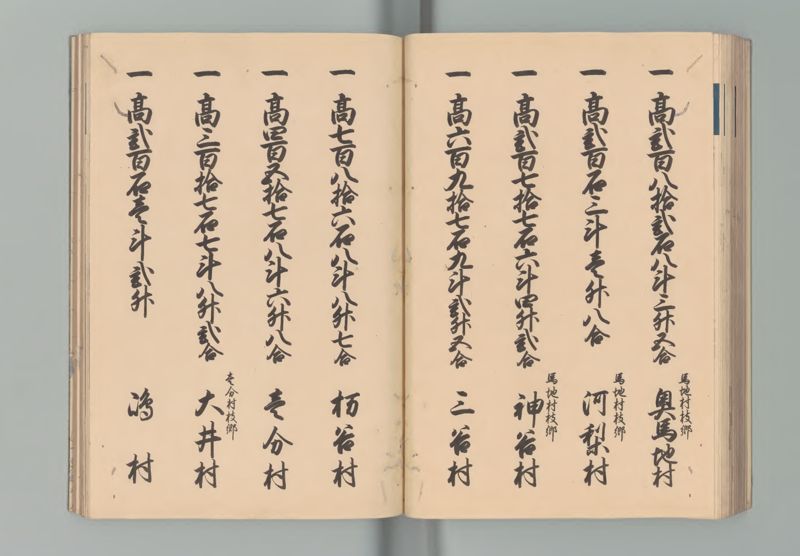 一 高弐百八拾弐石八斗三升又合 馬地村枝郷 奥馬地村
一 高弐百石三斗壱升八合 馬地村枝郷 河梨村
一 高弐百七拾七石六斗四升弐合 馬地村枝郷 神谷村
一 高六百九拾七石九斗弐升五合 三谷村
一 高七百八拾六石八斗八升七合 栃谷村
一 高四百五拾七石八斗六升八合 壱分村
一 高三百拾七石七斗八升弐合 壱分村枝郷 大井村
一 高弐百石壱斗弐升 嶋村